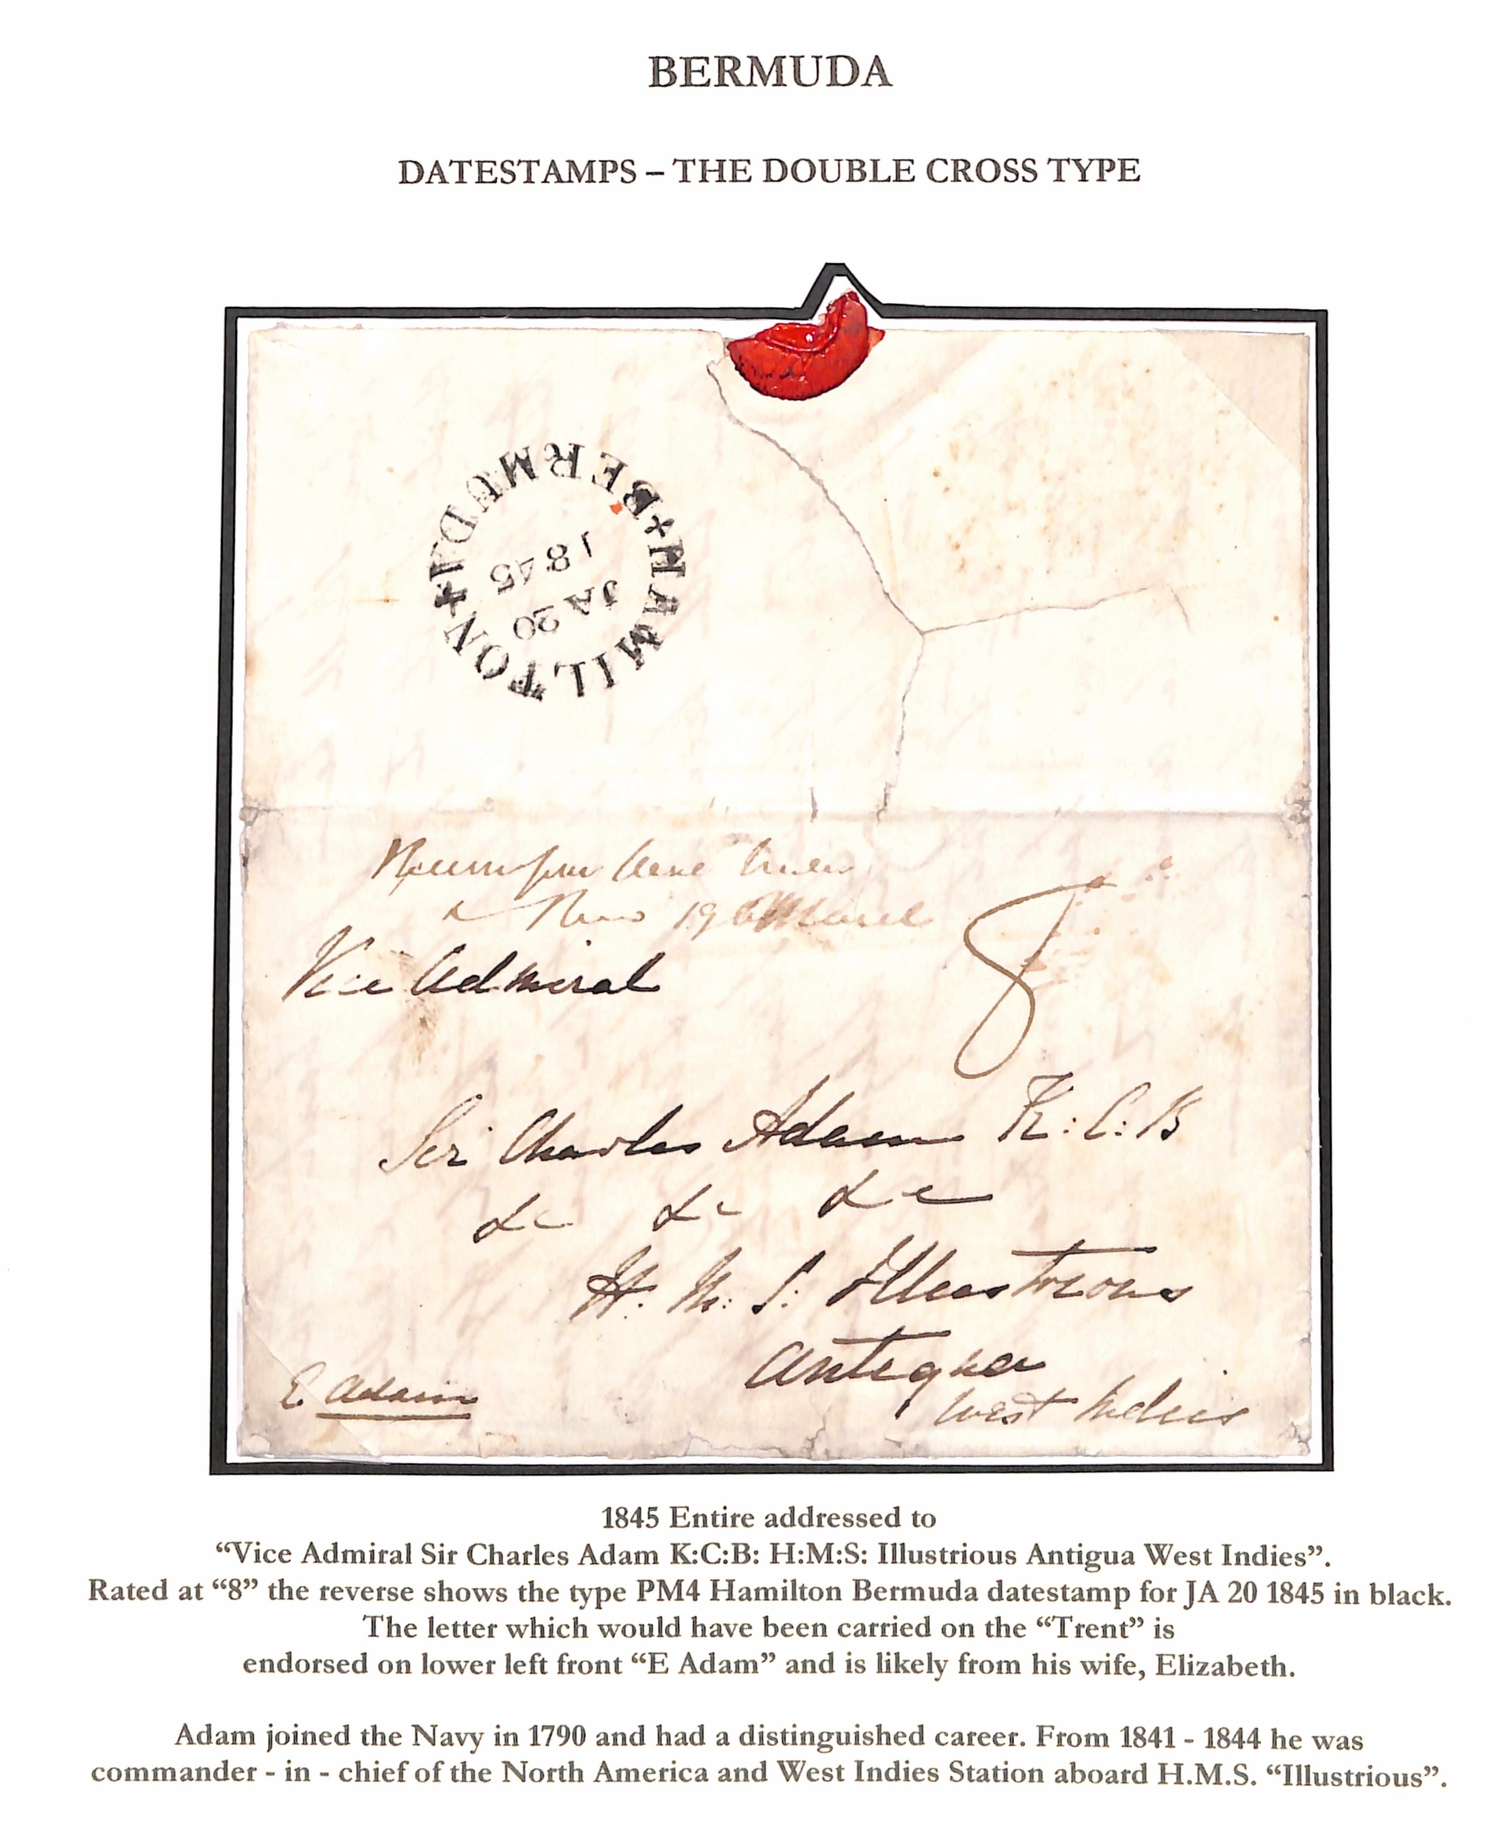 BERMUDA
DATESTAMPS – THE DOUBLE CROSS TYPE
HAMILTON + BERMUDA +
JA 20
1845
19
Vice Admiral
8
Sir Charles Adam K:C:B
&c &c &c
H. M: S: Illustrious
Antigua
West Indies
E Adam
1845 Entire addressed to
“Vice Admiral Sir Charles Adam K:C:B: H:M:S: Illustrious Antigua West Indies”.
Rated at “8” the reverse shows the type PM4 Hamilton Bermuda datestamp for JA 20 1845 in black.
The letter which would have been carried on the “Trent” is
endorsed on lower left front “E Adam” and is likely from his wife, Elizabeth.
Adam joined the Navy in 1790 and had a distinguished career. From 1841 - 1844 he was
commander - in - chief of the North America and West Indies Station aboard H.M.S. “Illustrious”.